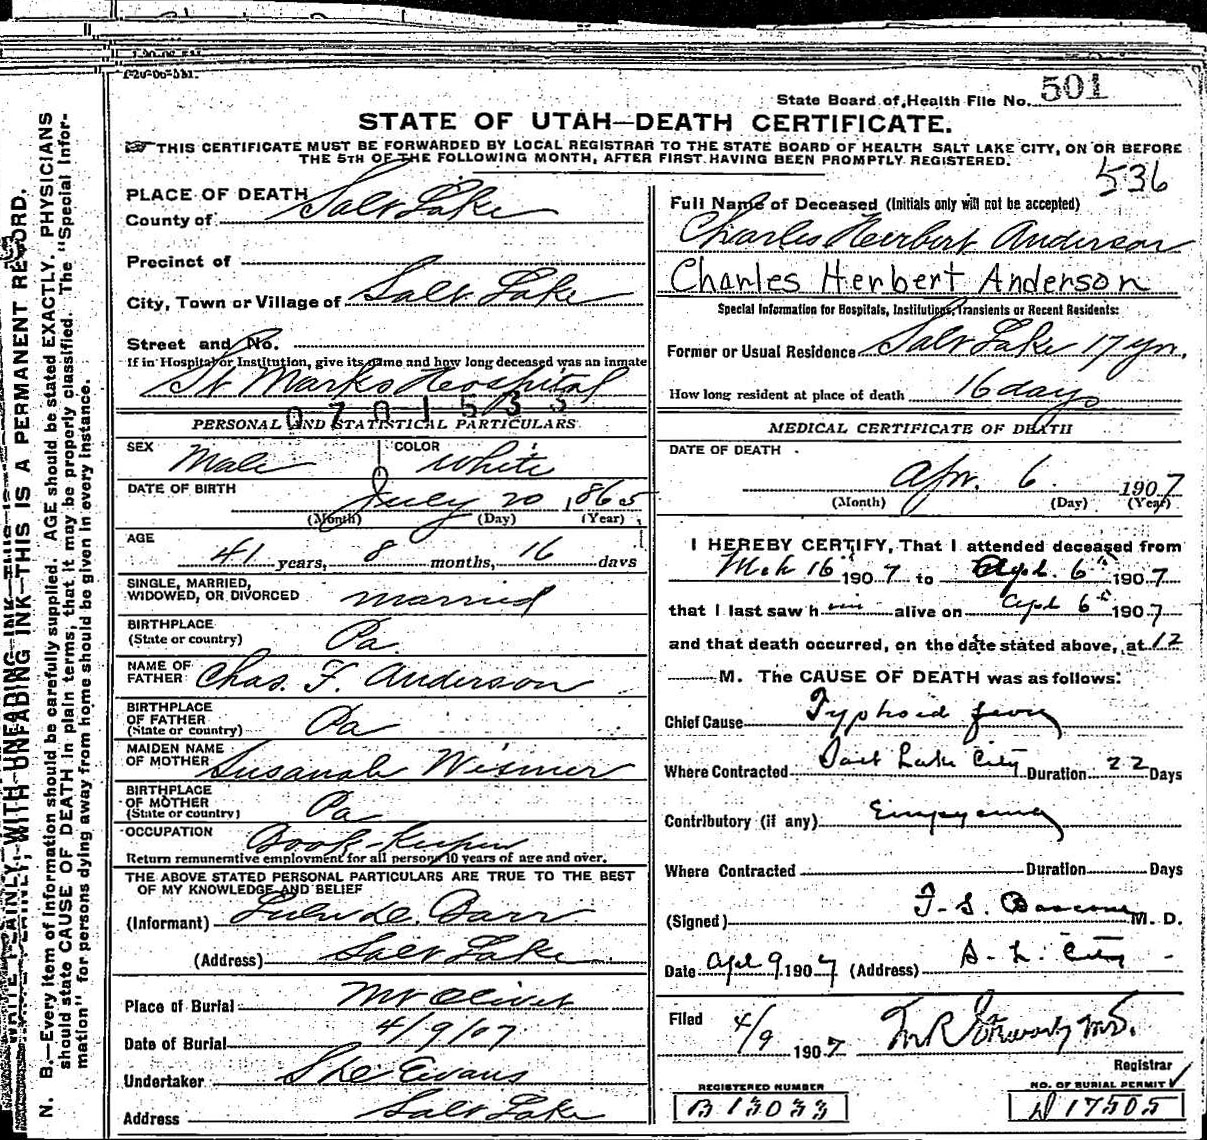 1-20-06-5M.
State Board of Health File No. 501
STATE OF UTAH—DEATH CERTIFICATE.
THIS CERTIFICATE MUST BE FORWARDED BY LOCAL REGISTRAR TO THE STATE BOARD OF HEALTH SALT LAKE CITY, ON OR BEFORE
THE 5TH OF THE FOLLOWING MONTH, AFTER FIRST HAVING BEEN PROMPTLY REGISTERED.
536
PLACE OF DEATH
County of Salt Lake
Precinct of
City, Town or Village of Salt Lake
Street and No.
If in Hospital or Institution, give its name and how long deceased was an inmate
St Marks Hospital
0701533
PERSONAL AND STATISTICAL PARTICULARS
SEX Male COLOR White
DATE OF BIRTH July 20 1865
(Month) (Day) (Year)
AGE
41 years, 8 months, 16 days
SINGLE, MARRIED,
WIDOWED, OR DIVORCED married
BIRTHPLACE
(State or country) Pa.
NAME OF
FATHER Chas. F. Anderson
BIRTHPLACE
OF FATHER
(State or country) Pa
MAIDEN NAME
OF MOTHER Susanah Wismer
BIRTHPLACE
OF MOTHER
(State or country) Pa
OCCUPATION Book-Keeper
Return remunerative employment for all persons 10 years of age and over.
THE ABOVE STATED PERSONAL PARTICULARS ARE TRUE TO THE BEST
OF MY KNOWLEDGE AND BELIEF
(Informant) Barr
(Address) Salt Lake
Place of Burial Mt Olivet
Date of Burial 4/9/07
Undertaker Evans
Address Salt Lake
Full Name of Deceased (Initials only will not be accepted)
Charles Herbert Anderson
Charles Herbert Anderson
Special Information for Hospitals, Institutions, Transients or Recent Residents:
Former or Usual Residence Salt Lake 17 yrs.
How long resident at place of death 16 days
MEDICAL CERTIFICATE OF DEATH
DATE OF DEATH
Apr. 6 1907
(Month) (Day) (Year)
I HEREBY CERTIFY, That I attended deceased from
Mch 16 1907 to Apl. 6th 1907
that I last saw him alive on Apl 6th 1907
and that death occurred, on the date stated above, at 12
M. The CAUSE OF DEATH was as follows:
Chief Cause Typhoid fever
Where Contracted Salt Lake City Duration 22 Days
Contributory (if any) Empyema
Where Contracted Duration Days
(Signed) F. S. Bascom M. D.
Date Apl 9 1907 (Address) S. L. City
Filed 4/9 1907 M.D.
Registrar
REGISTERED NUMBER
B 13033
NO. OF BURIAL PERMIT
D 17505
WRITE PLAINLY, WITH UNFADING INK—THIS IS A PERMANENT RECORD.
N. B.—Every item of Information should be carefully supplied. AGE should be stated EXACTLY. PHYSICIANS
should state CAUSE OF DEATH in plain terms, that it may be properly classified. The "Special Infor-
mation" for persons dying away from home should be given in every instance.